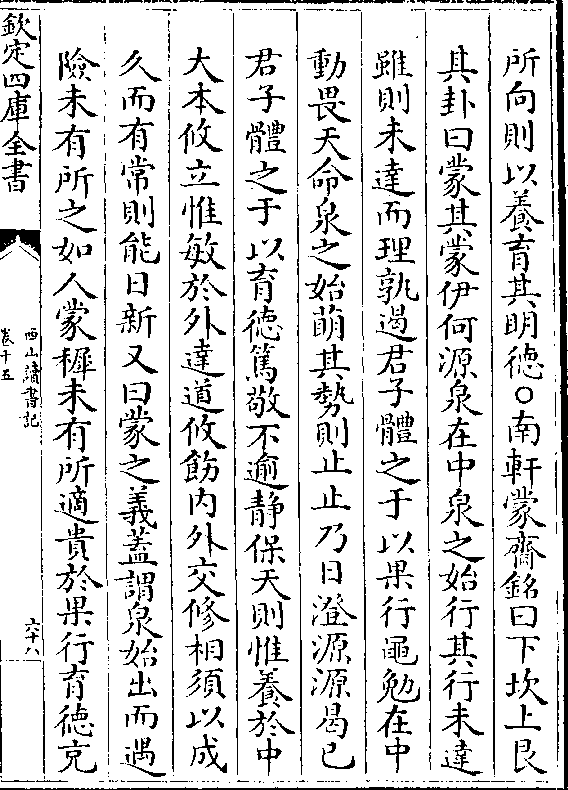 所向則以養育其明徳○南軒蒙齋銘曰下坎上艮
其卦曰蒙其蒙伊何源泉在中泉之始行其行未達
雖則未達而理孰遏君子體之于以果行黽勉在中
動畏天命泉之始萌其勢則止止乃日澄源源曷已
君子體之于以育徳篤敬不逾静保天則惟養於中
大本攸立惟敏於外達道攸飭内外交修相須以成
久而有常則能日新又曰蒙之義蓋謂泉始出而遇
險未有所之如人蒙穉未有所適貴於果行育徳充
欽定四庫全書
西山讀書記
卷十五
六十八